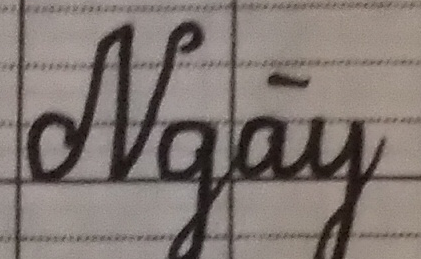 Ngày